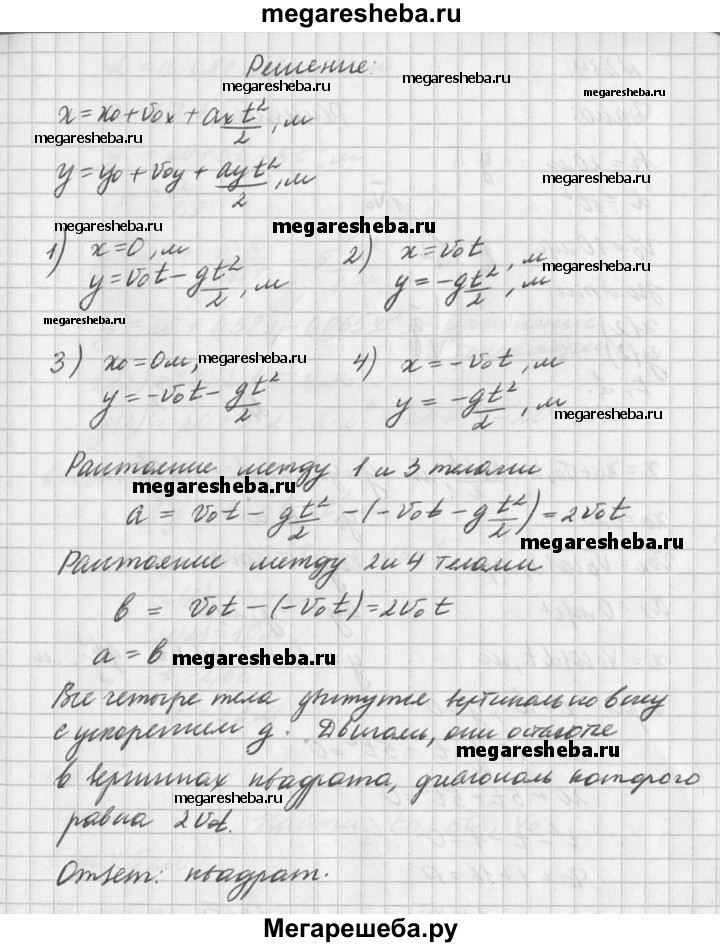 megaresheba.ru
Решение:
megaresheba.ru megaresheba.ru megaresheba.ru
x = x₀ + v₀ₓ + aₓt²/2, м
megaresheba.ru
y = y₀ + v₀y + ayt²/2, м
megaresheba.ru
megaresheba.ru megaresheba.ru
1) x = 0, м
y = v₀t − gt²/2, м
2) x = v₀t, м
y = −gt²/2, м
megaresheba.ru
megaresheba.ru
3) x₀ = 0м,
y = −v₀t − gt²/2
megaresheba.ru
4) x = −v₀t, м
y = −gt²/2, м
megaresheba.ru
Расстояние между 1 и 3 телами
megaresheba.ru
a = v₀t − gt²/2 − (−v₀t − gt²/2) = 2v₀t
megaresheba.ru
Расстояние между 2 и 4 телами
в = v₀t − (−v₀t) = 2v₀t
a = в
megaresheba.ru
Все четыре тела движутся вертикально вниз
с ускорением g. Двигаясь, они остаются
megaresheba.ru
в вершинах квадрата, диагональ которого
megaresheba.ru
равна 2v₀t.
Ответ: квадрат.
megaresheba.ru
Мегарешеба.ру